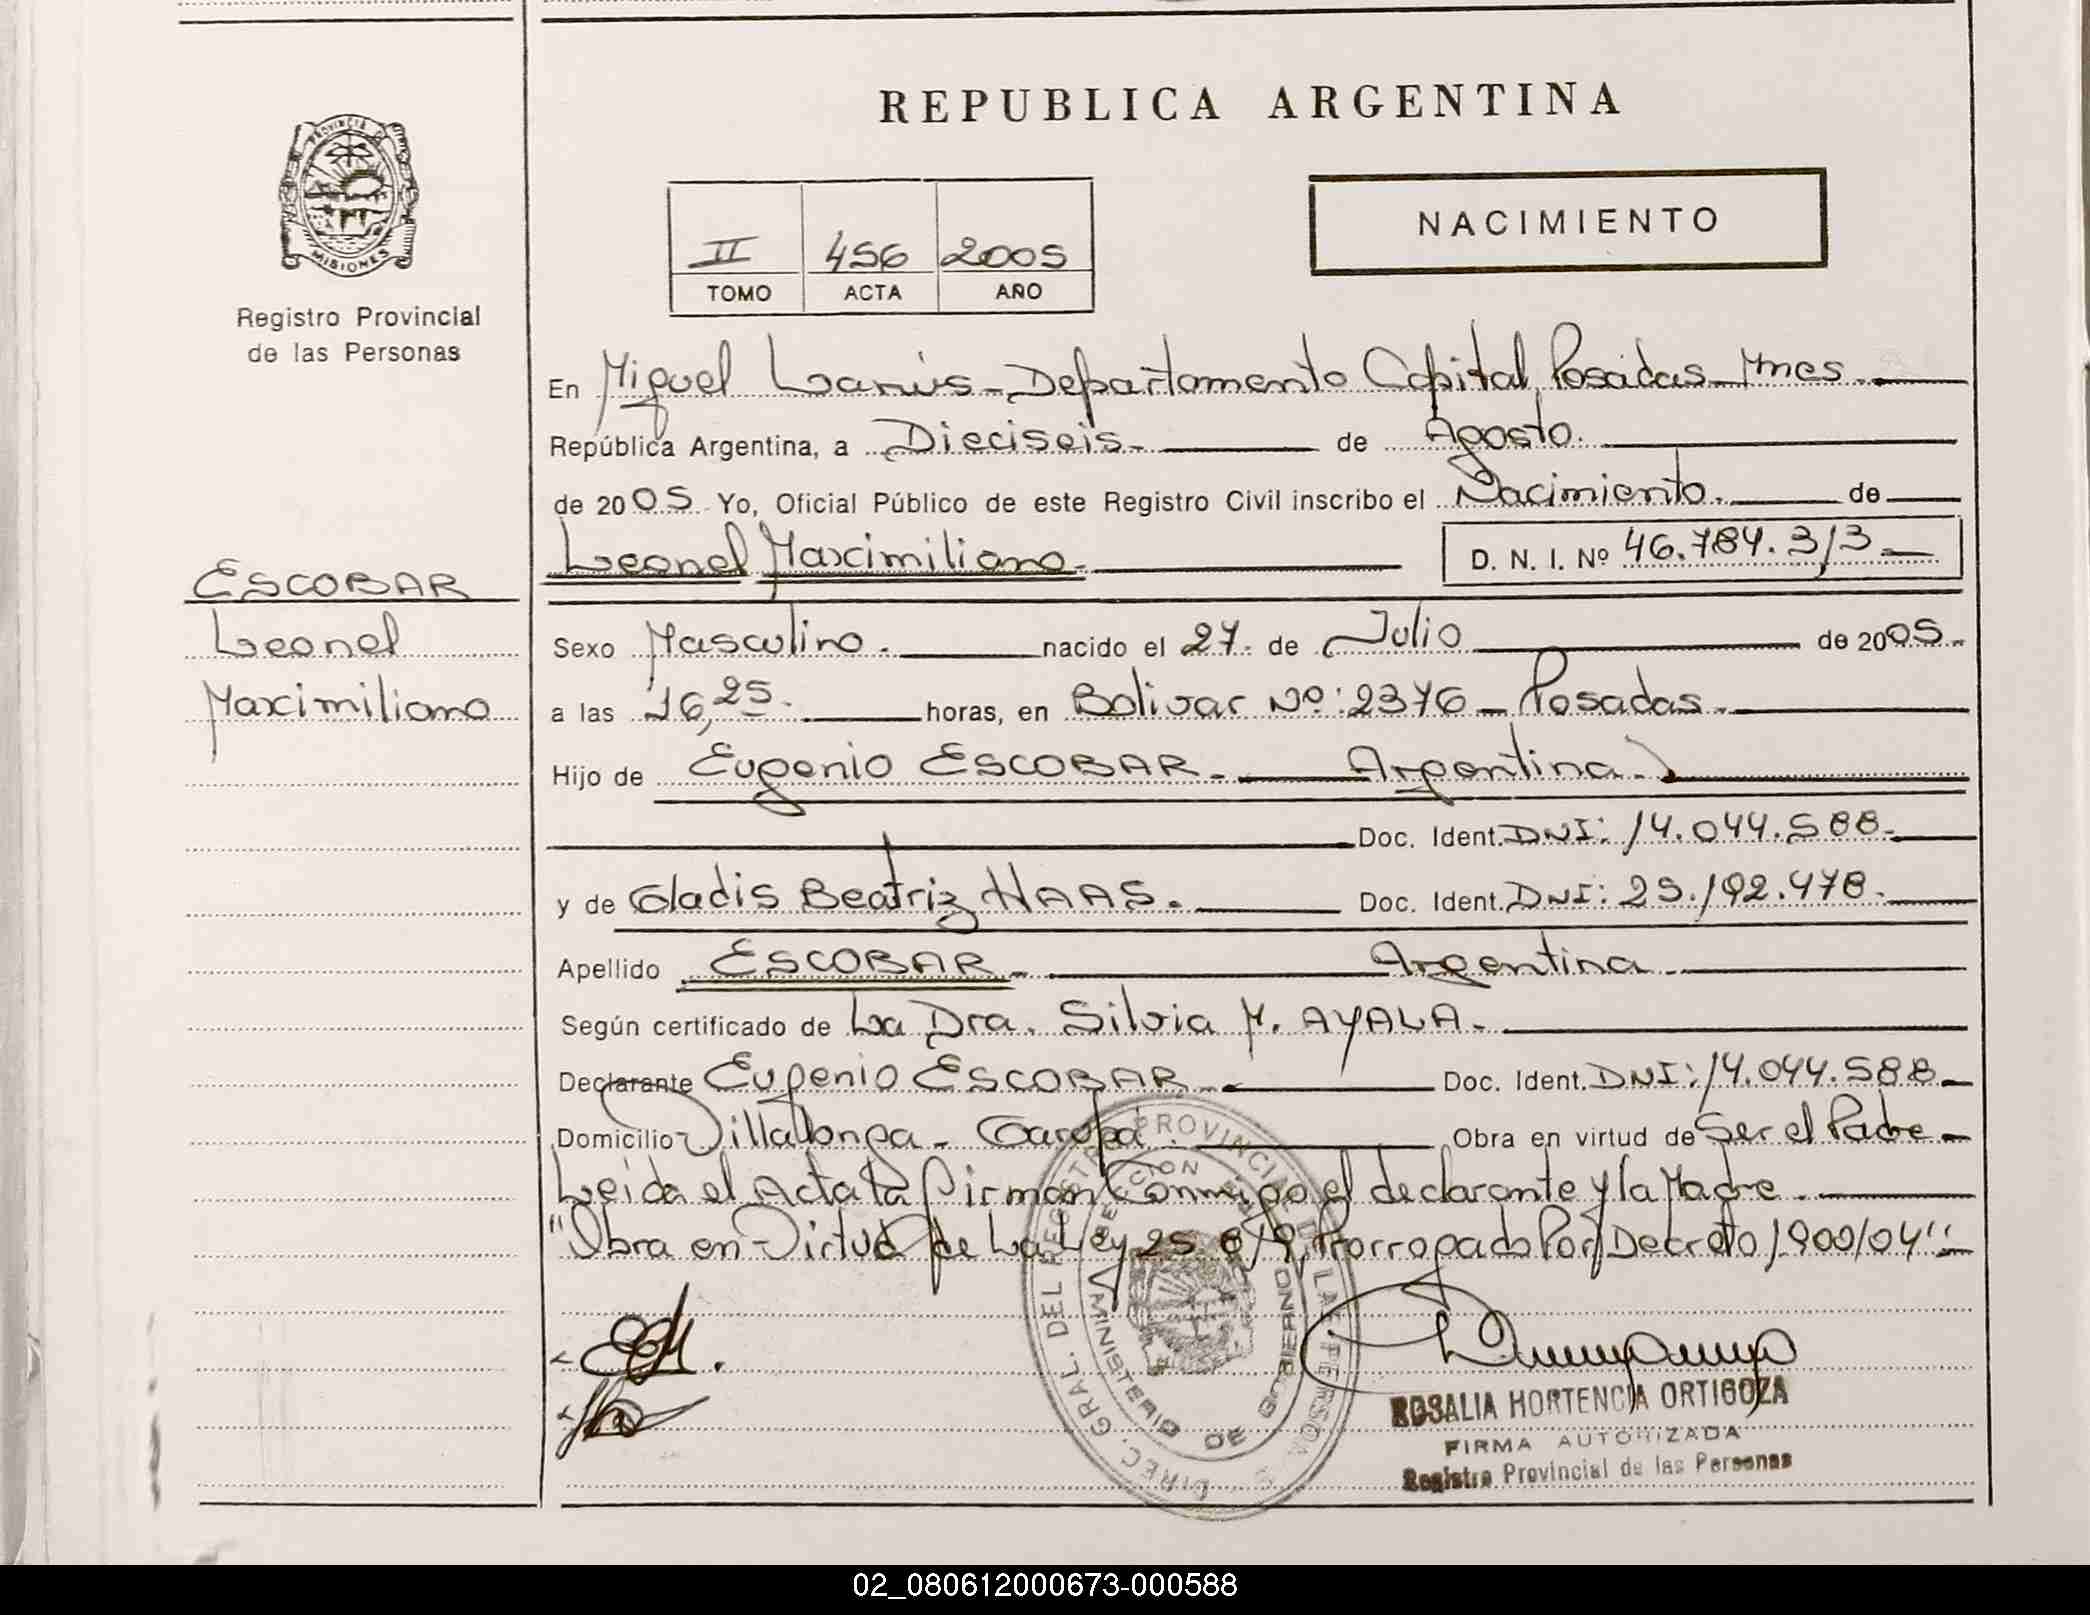 REPUBLICA ARGENTINA
PROVINCIA DE
MISIONES
Registro Provincial
de las Personas
NACIMIENTO
II 456 2005
TOMO ACTA AÑO
En Miguel Lanús - Departamento Capital, Posadas - Mnes
República Argentina, a Dieciseis - de Agosto.
de 2005 Yo, Oficial Público de este Registro Civil inscribo el Nacimiento. de
Leonel Maximiliano - D. N. I. Nº 46.784.313 -
ESCOBAR
Leonel
Maximiliano
Sexo Masculino. nacido el 27. de Julio de 2005.-
a las 16,25. horas, en Bolivar Nº: 2376 - Posadas.
Hijo de Eugenio ESCOBAR - Argentina.
Doc. Ident. DNI: 14.044.588.
y de Gladis Beatriz HAAS. Doc. Ident. DNI: 25.192.478.
Apellido ESCOBAR - Argentina
Según certificado de La Dra. Silvia M. AYALA.
Declarante Eugenio ESCOBAR Doc. Ident. DNI: 14.044.588 -
Domicilio Villalonga - Garupá. Obra en virtud de Ser el Padre -
Leida el Acta la firman Conmigo el declarante y la Madre.
"Obra en Virtud de La Ley 25.819, Prorrogado Por Decreto 1900/04" -
DIREC. GRAL. DEL REGISTRO PROVINCIAL DE LAS PERSONAS
MINISTERIO DE GOBIERNO
ROSALIA HORTENCIA ORTIGOZA
FIRMA AUTORIZADA
Registro Provincial de las Personas
02_080612000673-000588